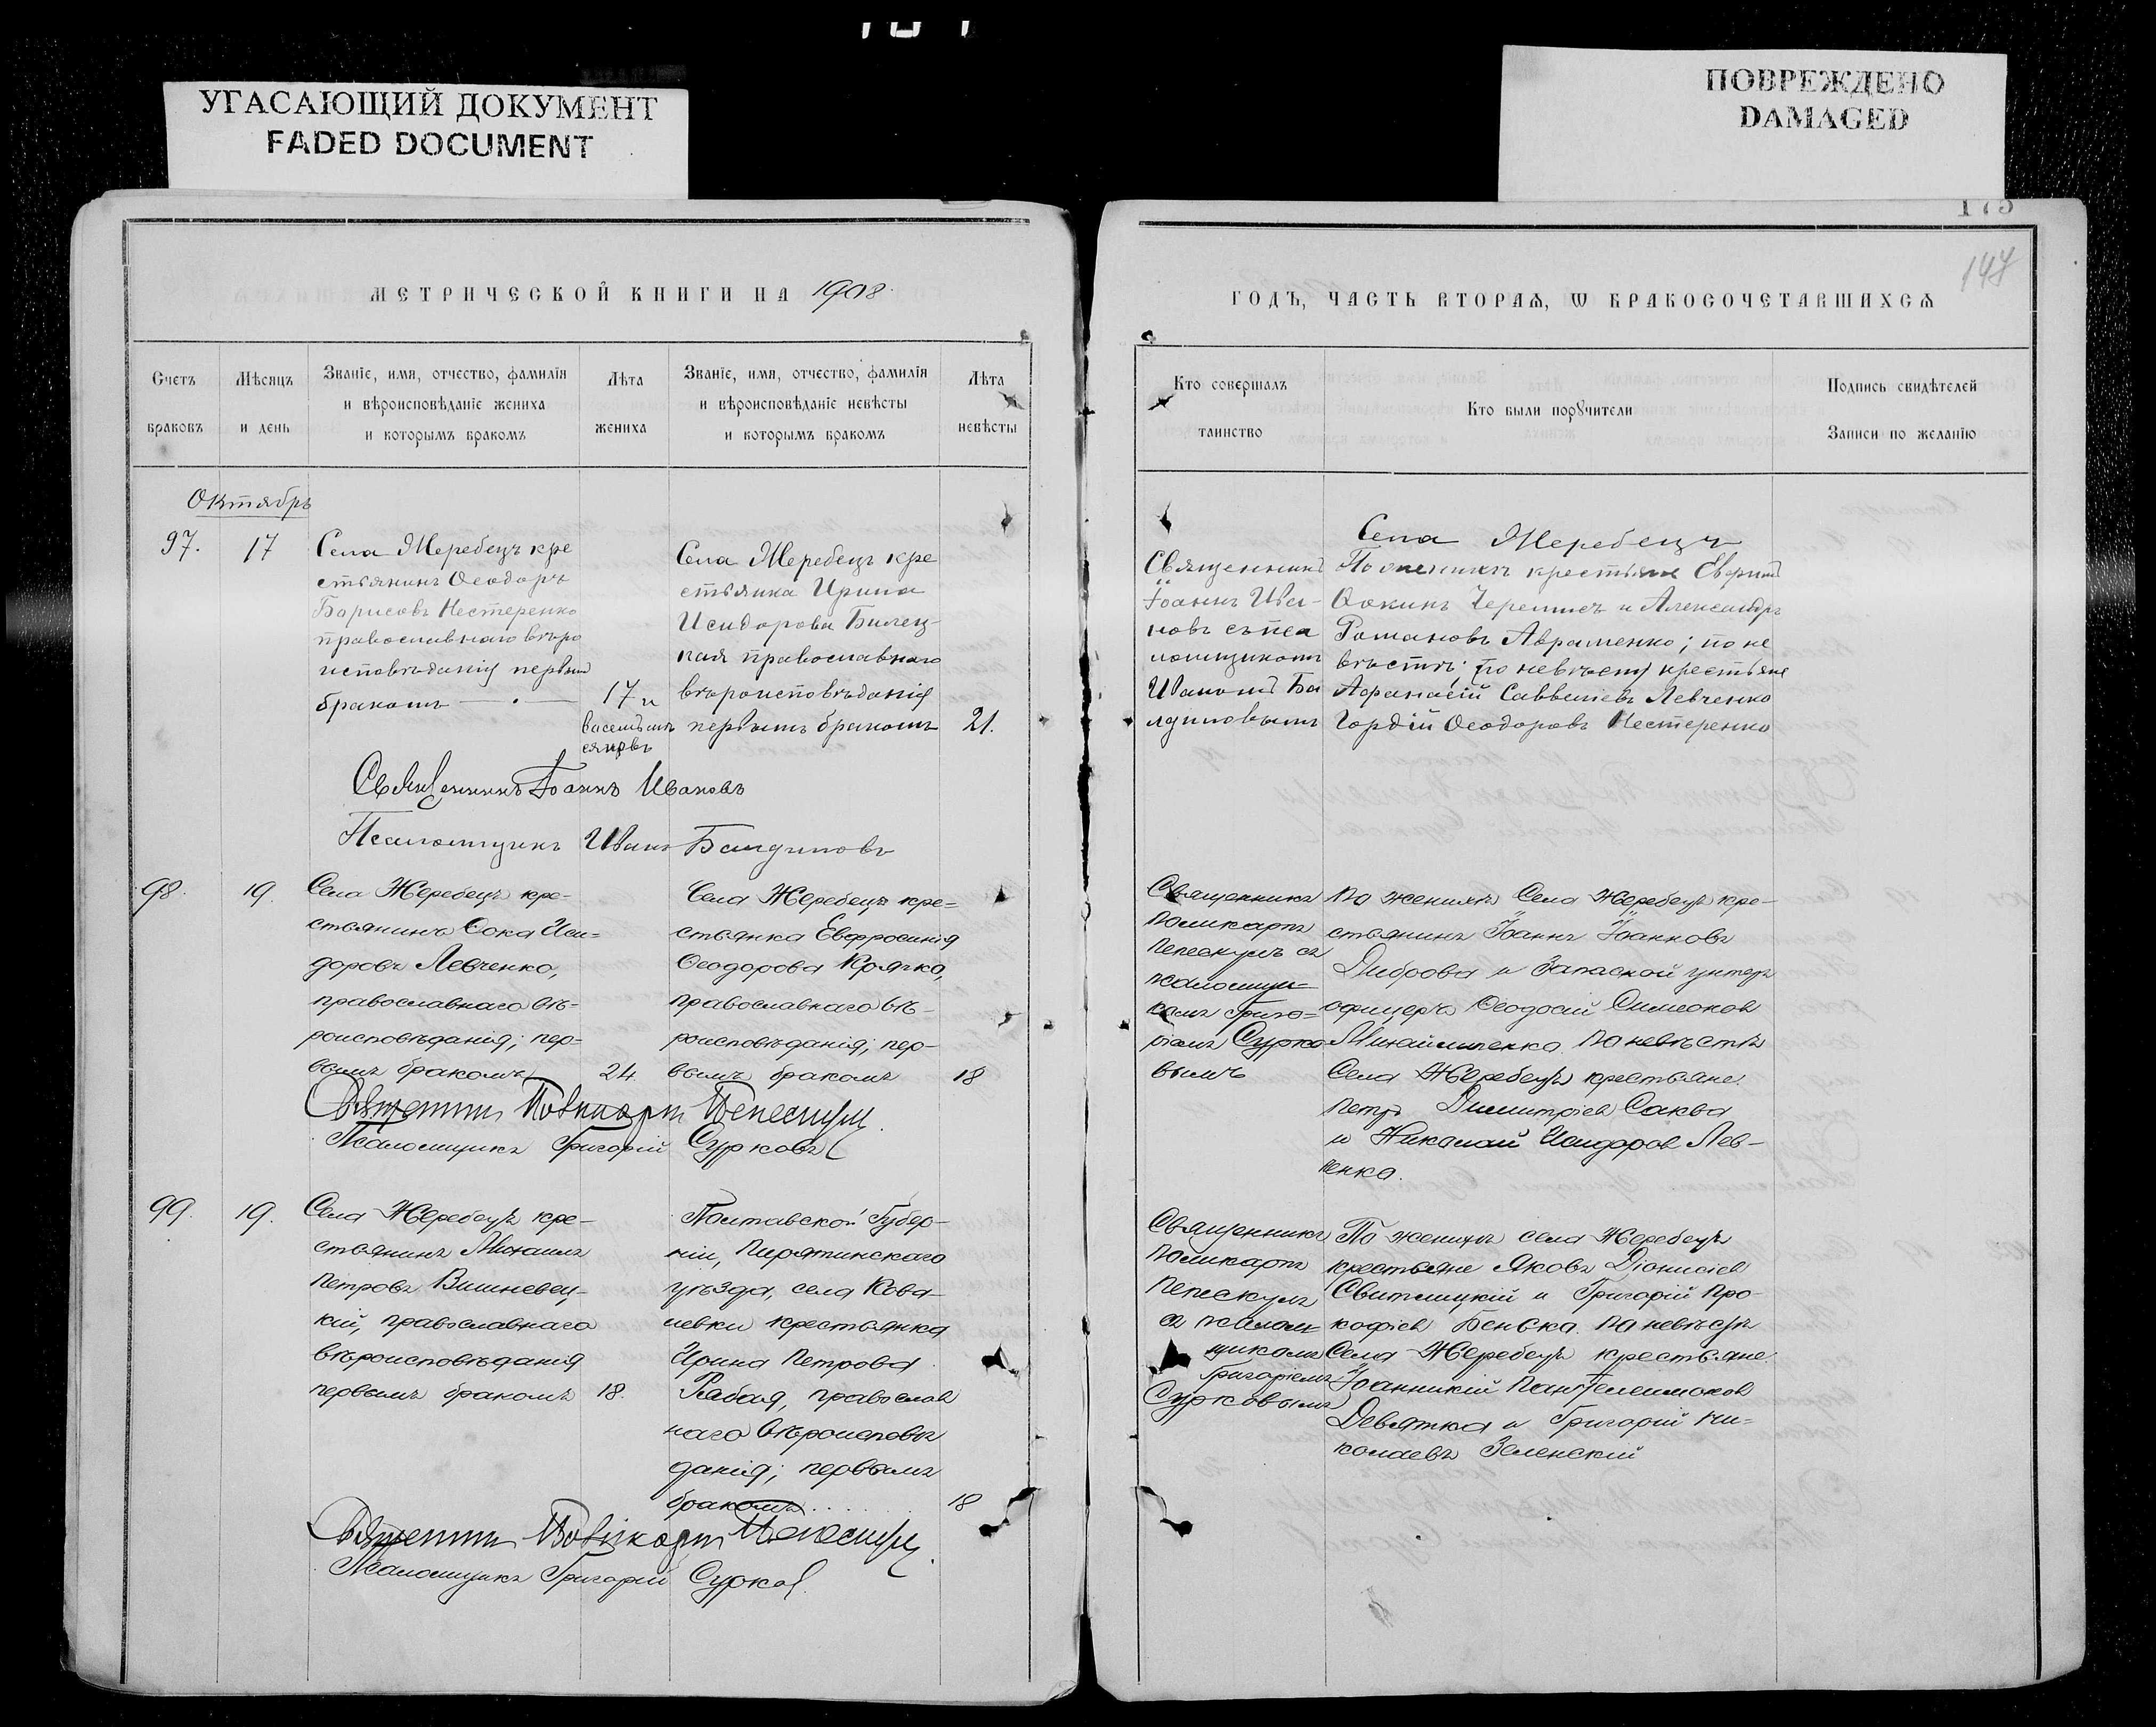 УГАСАЮЩИЙ ДОКУМЕНТ
FADED DOCUMENT
ПОВРЕЖДЕНО
DAMAGED
175
147
МЕТРИЧЕСКОЙ КНИГИ НА 1908
ГОДЪ, ЧАСТЬ ВТОРАѦ, Ѡ БРАКОСОЧЕТАВШИХСѦ
Счетъ
браковъ
Мѣсяцъ
и день
Званіе, имя, отчество, фамилія
и вѣроисповѣданіе жениха
и которымъ бракомъ
Лѣта
жениха
Званіе, имя, отчество, фамилія
и вѣроисповѣданіе невѣсты
и которымъ бракомъ
Лѣта
невѣсты
Кто совершалъ
таинство
Кто были порꙋчители
Подпись свидѣтелей
Записи по желанію
Октябрь
97.
17
Села Жеребецъ кре
стьянинъ Ѳеодоръ
Борисовъ Нестеренко
православнаго вѣро
исповѣданія первым
бракомъ
17 и
Села Жеребецъ кре
стьянка Ирина
Исидорова Билец-
кая православнаго
вѣроисповѣданія
первымъ бракомъ
21.
Священникъ
Іоаннъ Ива-
новъ съ пса
ломщикомъ
Иваномъ Ба
лдиновымъ
Села Жеребецъ
По женихѣ крестьяне
Ѳокинъ и Александръ
Романовъ Авраменко; по не
вѣстѣ; по невѣстѣ крестьяне
Афанасій Саввичевъ Левченко
Гордій Ѳеодоровъ Нестеренко
Священникъ Іоаннъ Ивановъ
Псаломщикъ Иванъ Балдиновъ
98.
19.
Села Жеребецъ кре-
стьянинъ Ѳока Иси=
доровъ Левченко,
православнаго вѣ-
роисповѣданія; пер-
вымъ бракомъ
24
Села Жеребецъ кре=
стьянка Евфросинія
Ѳеодорова Крячко,
православнаго вѣ-
роисповѣданія; пер-
вымъ бракомъ
18
Священникъ
Поликарпъ
Пепескулъ съ
псаломщи=
комъ Григо=
ріемъ Сурко
вымъ
По женихѣ Села Жеребецъ кре-
стьянинъ Іоаннъ Іоанновъ
Диброва и Запасной унтеръ
офицеръ Ѳеодосій Симеонов
Михайличенко. По невѣстѣ
Села Жеребецъ крестьяне:
Петръ Димитріев Саква
и Николай Исидоров Лев-
ченко.
Священникъ Поликарпъ Пепескулъ
Псаломщикъ Григорій Сурковъ
99.
19.
Села Жеребецъ кре-
стьянинъ Михаилъ
Петровъ Вишневец-
кій, православнаго
вѣроисповѣданія
первымъ бракомъ
18.
Полтавской Губер-
ніи, Пирятинскаго
уѣзда, села Кова-
левки крестьянка
Ирина Петрова
Рабая, православ
наго вѣроисповѣ
данія; первымъ
бракомъ
18
Священникъ
Поликарпъ
Пепескулъ
съ псалом=
щикомъ
Григоріемъ
Сурковымъ
По женихѣ села Жеребецъ
крестьяне Яковъ Діонисіев
Свитлицкій и Григорій Про-
кофіев Бенька. По невѣстѣ
Села Жеребецъ крестьяне:
Іоанникій Пантелеимонов
Девятка и Григорій Ни=
колаевъ Зеленскій
Священникъ Поликарпъ Пепескулъ
Псаломщикъ Григорій Сурков